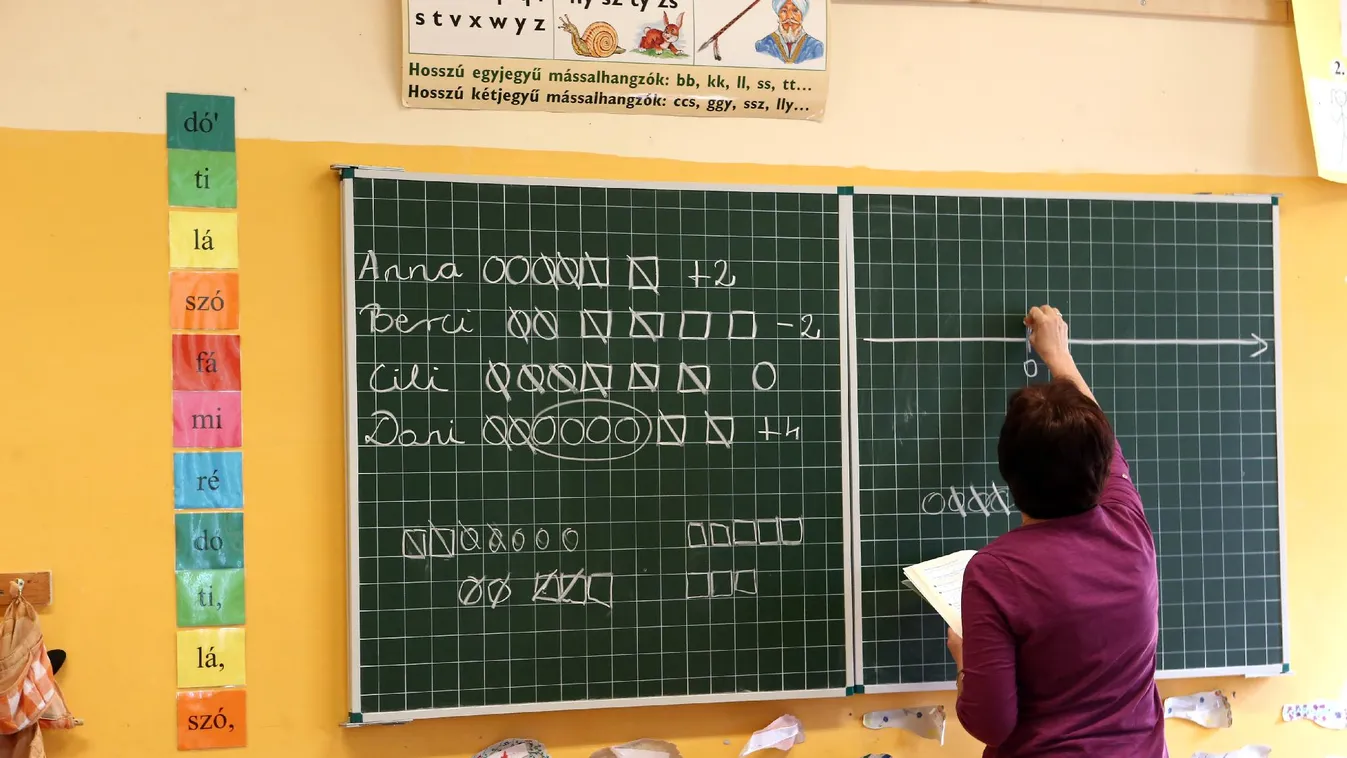 s t v x w y z
ny sz ty zs
Hosszú egyjegyű mássalhangzók: bb, kk, ll, ss, tt...
Hosszú kétjegyű mássalhangzók: ccs, ggy, ssz, lly...
dó'
ti
lá
szó
fá
mi
ré
dó
ti,
lá,
szó,
Anna +2
Berci -2
Cili 0
Dani +4
0
2.